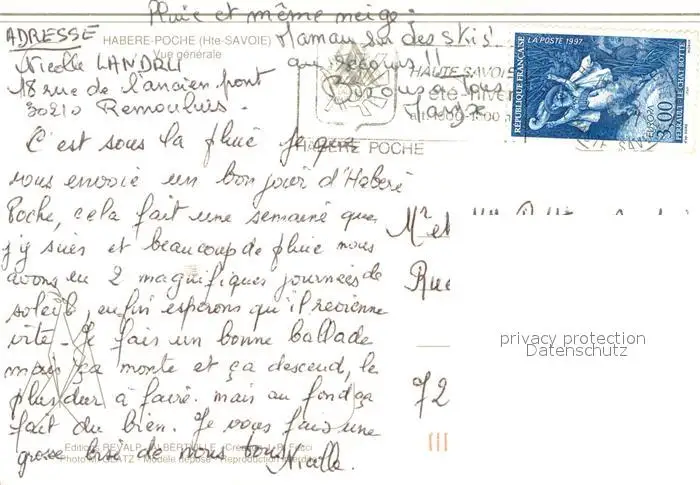 Pluie et même neige.
Maman sur des skis!
au secours!!
ADRESSE
HABERE-POCHE (Hte-SAVOIE)
Vue générale
Nicolle LANDRU
18 rue de l'ancien pont
30210 Remoulins.
HAUTE SAVOIE
été hiver
HABERE POCHE
LA POSTE 1997
RÉPUBLIQUE FRANÇAISE
PERRAULT - LE CHAT BOTTÉ
EUROPA
3,00
C'est sous la pluie que
vous envoie un bon jour d'Habère
Poche, cela fait une semaine que
j'y suis et beaucoup de pluie nous
avons eu 2 magnifiques journées de
soleil, enfin esperons qu'il revienne
vite - Je fais un bonne ballade
mais ça monte et ça descend, le
plus dur à faire. mais au fond ça
fait du bien. Je vous fais une
grosse bise de nous tous
Nicolle.
Mr et
Rue
72
privacy protection
Datenschutz
Editions REVALP
Modèle déposé - Reproduction interdite